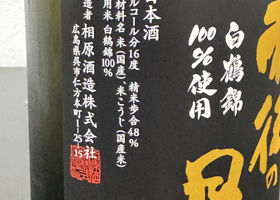 雨後の月
白鶴錦
100%使用
日本酒
アルコール分16度 精米歩合48%
原材料名 米(国産)、米こうじ(国産米)
使用米 白鶴錦100%
製造者 相原酒造株式会社
広島県呉市仁方本町1-25-15